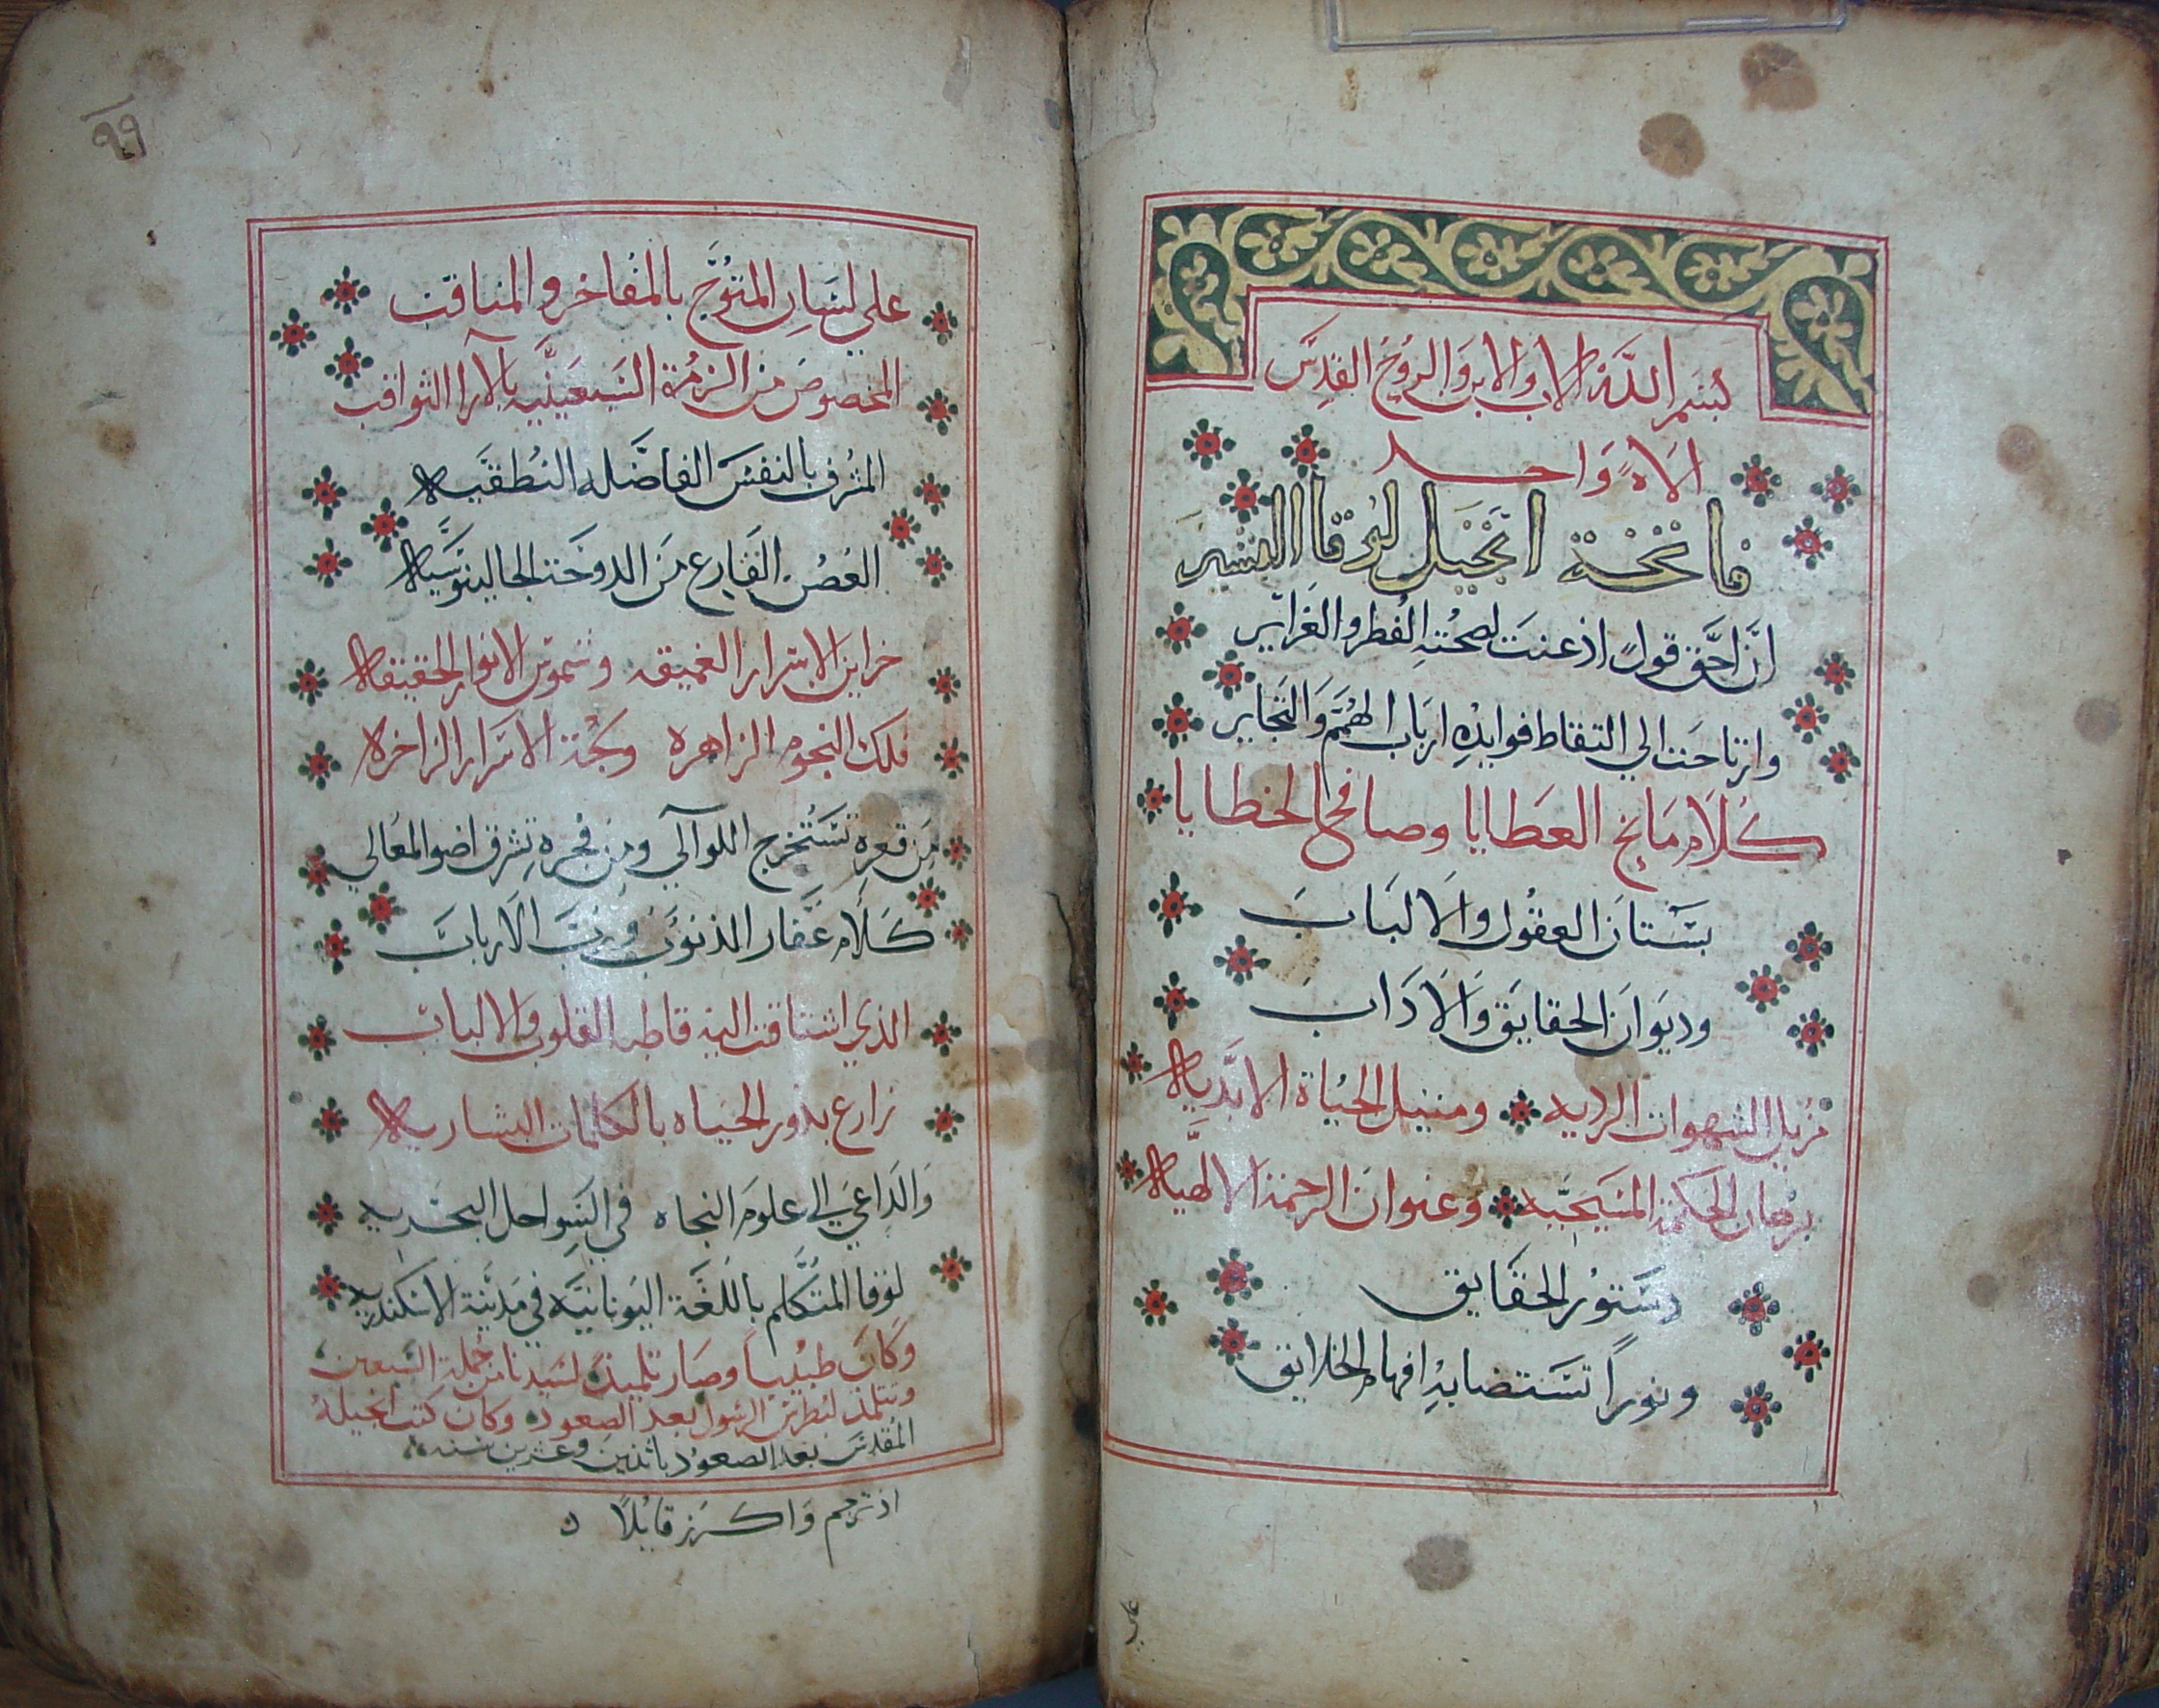 بسم الله الاب والابن والروح القدس
الاه واحد
فاتحة انجيل لوقا البشير
ان احق قول اذعنت لصحته الفطر والغراير
وارتاحت الي التقاط فوايده ارباب الهمم والنحاير
كلام مانح العطايا وصافح الخطايا
بستان العقول والالباب
وديوان الحقايق والاداب
مزيل الشهوات الرديه ومنيل الحياة الابديه
برهان الحكمة المسيحيه وعنوان الرحمة الالهيه
دستور الحقايق
ونوراً تستضا به افهام الخلايق
علي
٩٩
علي لسان المتوج بالمفاخر والمناقب
المخصوص من الزمرة السبعينيه بالآرا الثواقب
المشرف بالنفس الفاضله النطقيه
الغصن الفارع من الدوحة الجالينوسيه
خزاين الاسرار الغميقه وشموس الانوار الحقيقه
فلك النجوم الزاهره ولجة الاسرار الزاخره
من قعره تستخرج اللوآلي ومن فجره تشرق اضوا المعالي
كلام غفار الذنوب ورب الارباب
الذي اشتاقت اليه قاطبة القلوب والالباب
زارع بذور الحياه بالكلمات البشاريه
والداعي الي علوم النجاه في السواحل البحريه
لوقا المتكلم باللغة اليونانيه في مدينة الاسكندريه
وكان طبيباً وصار تلميذ لسيدنا من جملة السبعين
وتتلمذ لبطرس الرسول بعد الصعود وكان كتب انجيله
المقدس بعد الصعود باثنين وعشرين سنه
اذ ترجم واكرز قايلاً